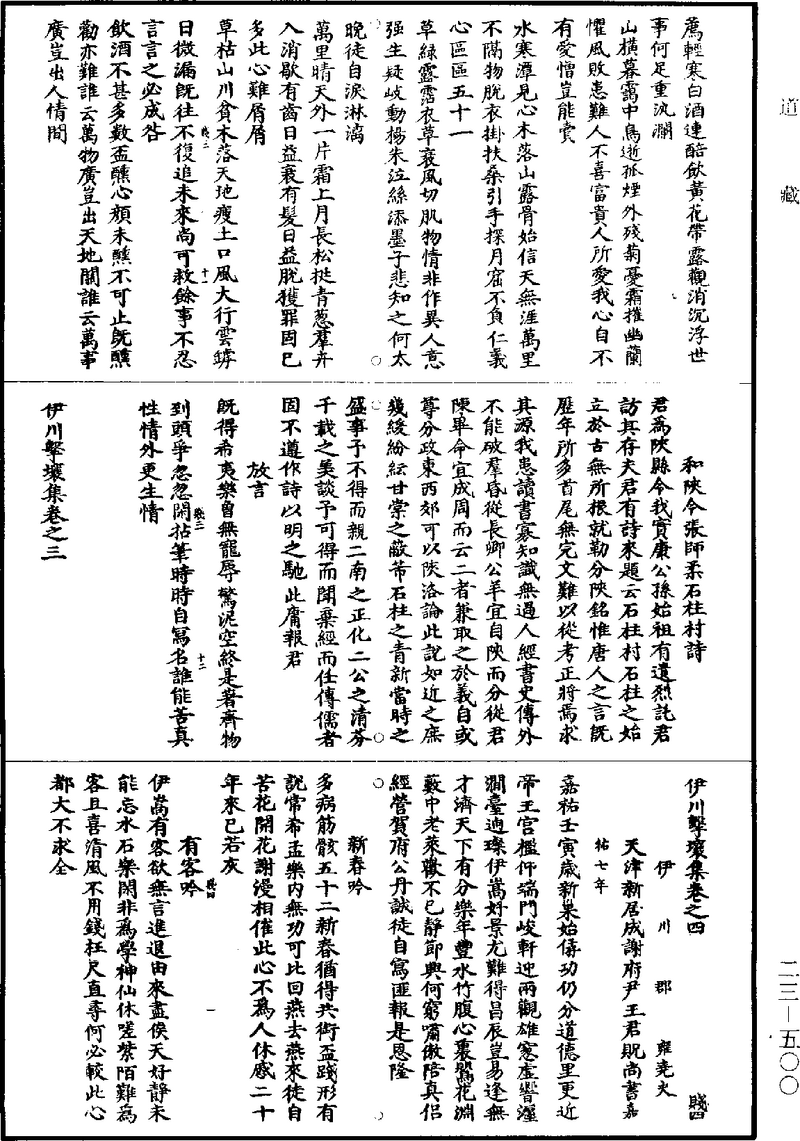 道藏
薦輕寒白酒連醅飲黃花帶露觀消沉浮世
事何足重汍瀾
山橫暮靄中鳥逝孤煙外殘菊憂霜摧幽蘭
懼風敗患難人不喜富貴人所愛我心自不
有愛憎豈能賣
水寒潭見心木落山露骨始信天無涯萬里
不隔物脫衣掛扶桑引手探月窟不負仁義
心區區五十一
草綠露霑衣草衰風切肌物情非作異人意
强生疑岐動楊朱泣絲添墨子悲知之何太
晚徒自淚淋漓
萬里晴天外一片霜上月長松挺青葱羣卉
入消歇有齒日益衰有髮日益脫獲罪固已
多此心難屑屑
草枯山川貧木落天地瘦土口風大行雲鎊
日微漏旣往不復追未來尚可救餘事不忍
言言之必成咎
飲酒不甚多數盃醺心顏未醺不可止旣醺
勸亦難誰云萬物廣豈出天地關誰云萬事
廣豈出人情間
和陝令張師柔石柱村詩
君爲陝縣令我實康公孫始祖有遺烈託君
訪其存夫君有詩來題云石柱村石柱之始
立於古無所根就勒分陝銘惟唐人之言旣
歷年所多首尾無完文難以從考正將焉求
其源我患讀書寡知識無過人經書史傳外
不能破羣昏從長卿公羊宜自陝而分從君
陳畢命宜成周而云二者兼取之於義自或
尊分政東西郊可以陝洛論此說如近之庶
幾綏紛紜甘棠之蔽芾石柱之青新當時之
盛事予不得而親二南之正化二公之清芬
千載之美談予可得而聞棄經而任傳儒者
固不遵作詩以明之馳此庸報君
放言
旣得希夷樂曾無寵辱驚泥空終是著齊物
到頭爭忽忽閑拈筆時時自寫名誰能苦真
性情外更生情
伊川擊壤集卷之三
伊川擊壤集卷之四 賤四
伊川郡雍堯夫
天津新居成謝府尹王君貺尚書嘉
祐七年
嘉祐壬寅歲新巢始僝功仍分道德里更近
帝王宮檻仰端門峻軒迎兩觀雄窓虛響瀍
澗臺迥璨伊嵩好景尤難得昌辰豈易逢無
才濟天下有分樂年豐水竹腹心裏鶯花淵
藪中老萊歡不已靜節興何窮嘯傲陪真侣
經營賀府公丹誠徒自寫匪報是恩隆
新春吟
多病筋骸五十二新春猶得共銜盃踐形有
說常希孟樂內無功可比回燕去燕來徒自
苦花開花謝漫相催此心不爲人休慼二十
年來已若灰
有客吟
伊嵩有客欲無言進退由來盡俟天好靜未
能忘水石樂閑非爲學神仙休嗟紫陌難爲
客且喜清風不用錢枉尺直尋何必較此心
都大不求全
二三—五〇〇